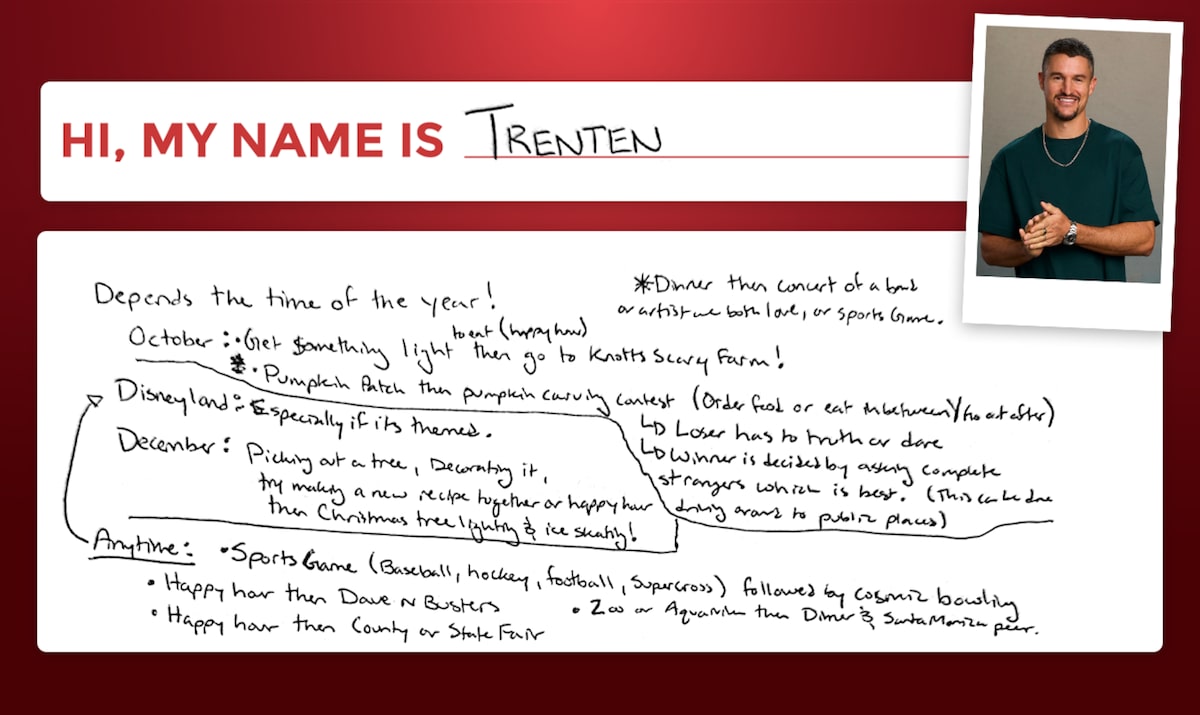 HI, MY NAME IS TRENTEN
Depends the time of the year!
*Dinner then concert of a band
or artist we both love, or sports Game.
October : • Get Something light to eat (happy hour) then go to Knotts Scary Farm!
* • Pumpkin Patch then pumpkin carving contest (Order food or eat inbetween)/go out after)
↳ Loser has to truth or dare
↳ Winner is decided by asking complete
strangers which is best. (This can be done
driving around to public places)
Disneyland: Especially if its themed.
December: Picking out a tree, Decorating it,
try making a new recipe together or happy hour
then Christmas tree lighting & ice skating!
Anytime: • Sports Game (Baseball, hockey, football, Supercross) followed by cosmic bowling
• Happy hour then Dave N Busters
• Zoo or Aquarium then Dinner & Santa Monica peer.
• Happy hour then County or State Fair